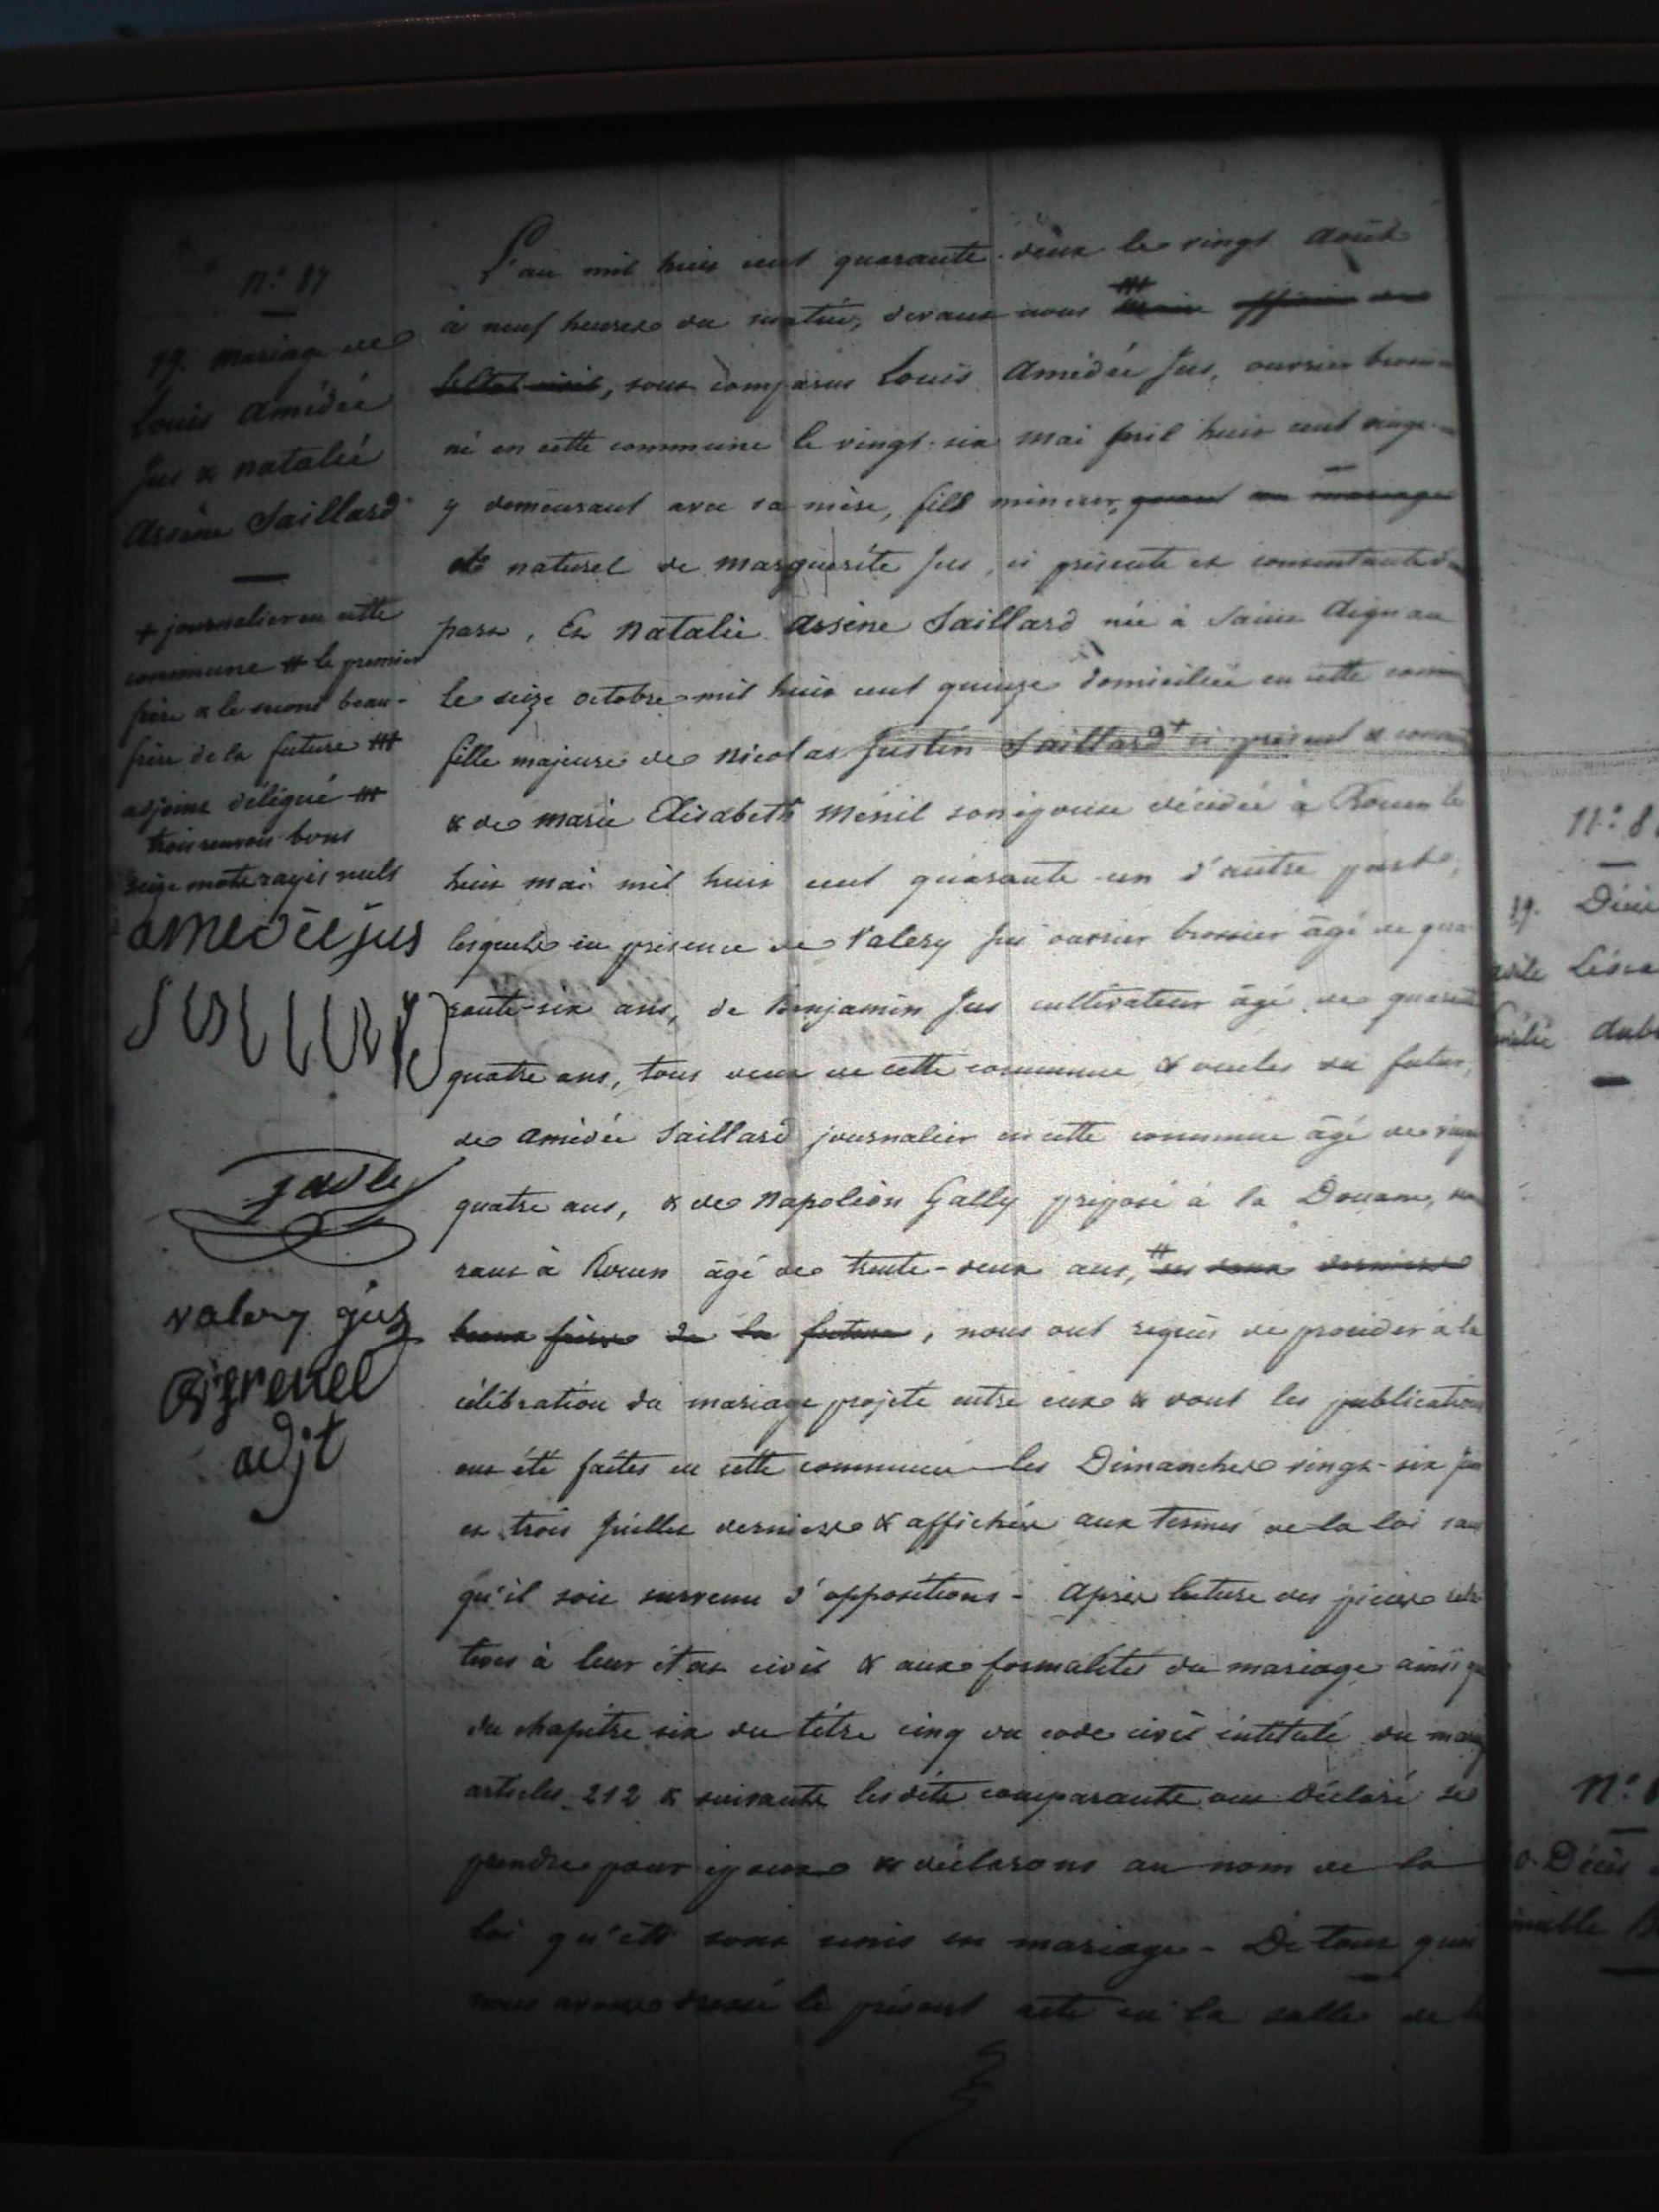 N.° 87
19. Mariage de
Louis Amédée
Jus & Natalie
Arsène Saillard
+ journalier en cette
commune # le premier
frère & le second beau-
frère de la future ###
adjoint délégué ###
trois renvois bons
seize mots rayés nuls
amedée jus
valery jus
adjt
L'an mil huit cent quarante-deux le vingt Août
à neuf heures du matin, devant nous ### officier de
l'état civil, sont comparus Louis Amédée Jus, ouvrier
né en cette commune le vingt-six mai mil huit cent vingt-
y demeurant avec sa mère, fils mineur, quant au mariage
et naturel de Marguerite Jus, ci présente et consentante d'
part, Et Natalie Arsène Saillard née à Saint Aignan
le seize octobre mil huit cent quinze domiciliée en cette com
fille majeure de Nicolas Justin Saillard + ci présent & consen
& de Marie Elisabeth Ménil son épouse décédée à Rouen le
huit mai mil huit cent quarante-un d'autre part,
lesquels en présence de Valery Jus ouvrier brossier âgé de qua
rante-six ans, de Benjamin Jus cultivateur âgé de quarante
quatre ans, tous deux de cette commune & oncles du futur,
de Amédée Saillard journalier en cette commune âgé de vingt
quatre ans, & de Napoléon Gally préposé à la Douane,
rant à Rouen âgé de trente-deux ans, # les deux derniers
beaux frères de la future, nous ont requis de procéder à la
célébration du mariage projeté entre eux & dont les publications
ont été faites en cette commune les Dimanches vingt-six Juin
et trois Juillet derniers & affichées aux termes de la loi sans
qu'il soit survenu d'oppositions - Après lecture des pièces rela
tives à leur état civil & aux formalités du mariage ainsi que
du chapitre six du titre cinq du code civil intitulé du mariage
articles 212 & suivants lesdits comparants ont déclaré se
prendre pour époux & déclarons au nom de la
loi qu'ils sont unis en mariage - De tout quoi
nous avons dressé le présent acte en la salle de la
N.° 8
19. Décè
N.°
Décès